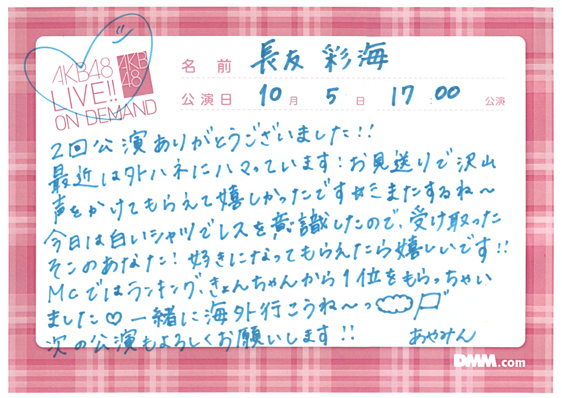 AKB48
LIVE!!
ON DEMAND
AKB
48
名前 長友 彩海
公演日 10月 5日 17:00 公演
2回公演ありがとうございました!!
最近は外ハネにハマっています!お見送りで沢山
声をかけてもらえて嬉しかったです☆ミまたするね〜
今日は白いシャツでレスを意識したので、受け取った
そこのあなた!好きになってもらえたら嬉しいです!!
MCではランキング、きょんちゃんから1位をもらっちゃい
ました♡一緒に海外行こうね〜っ
次の公演もよろしくお願いします!! あやみん
DMM.com